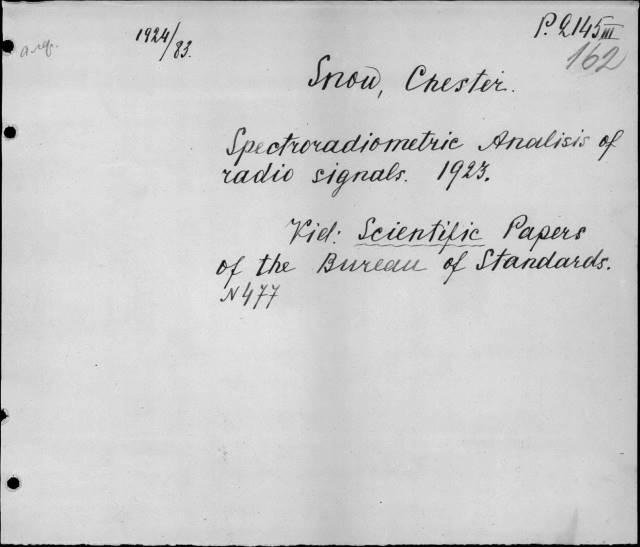 1924/83.
P. 2145 III
162
Snow, Chester.
Spectroradiometric Analisis of
radio signals. 1923.
Vid: Scientific Papers
of the Bureau of Standards.
N 477